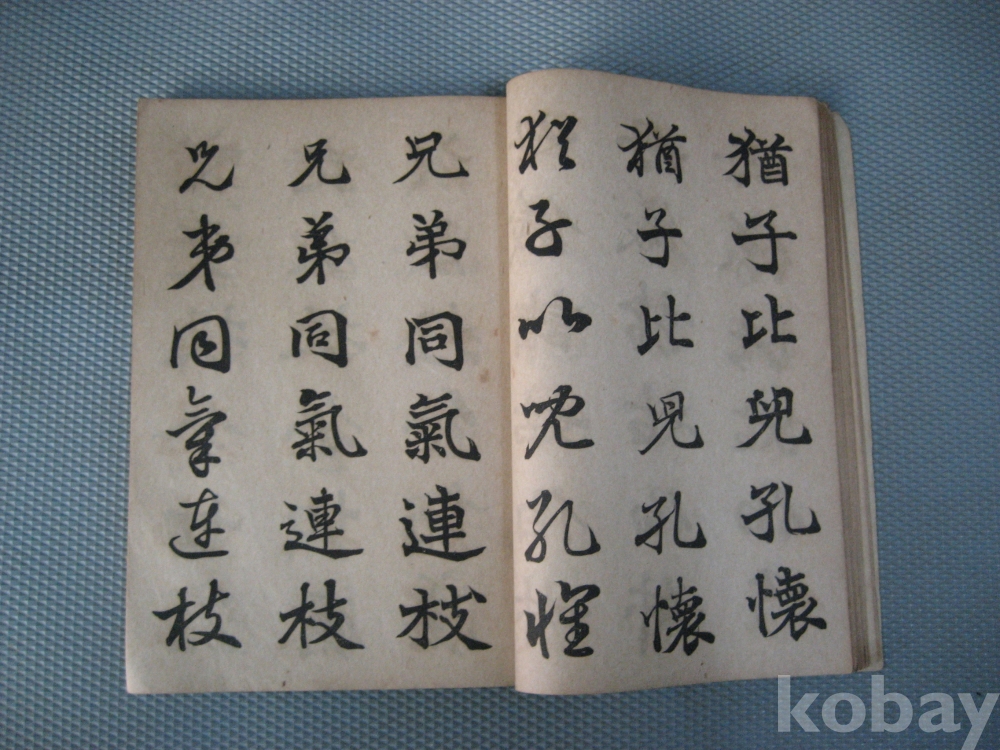 猶子比兒孔懷
猶子比児孔懷
猶子比兒孔懷
兄弟同氣連枝
兄弟同氣連枝
兄弟同氣連枝
kobay